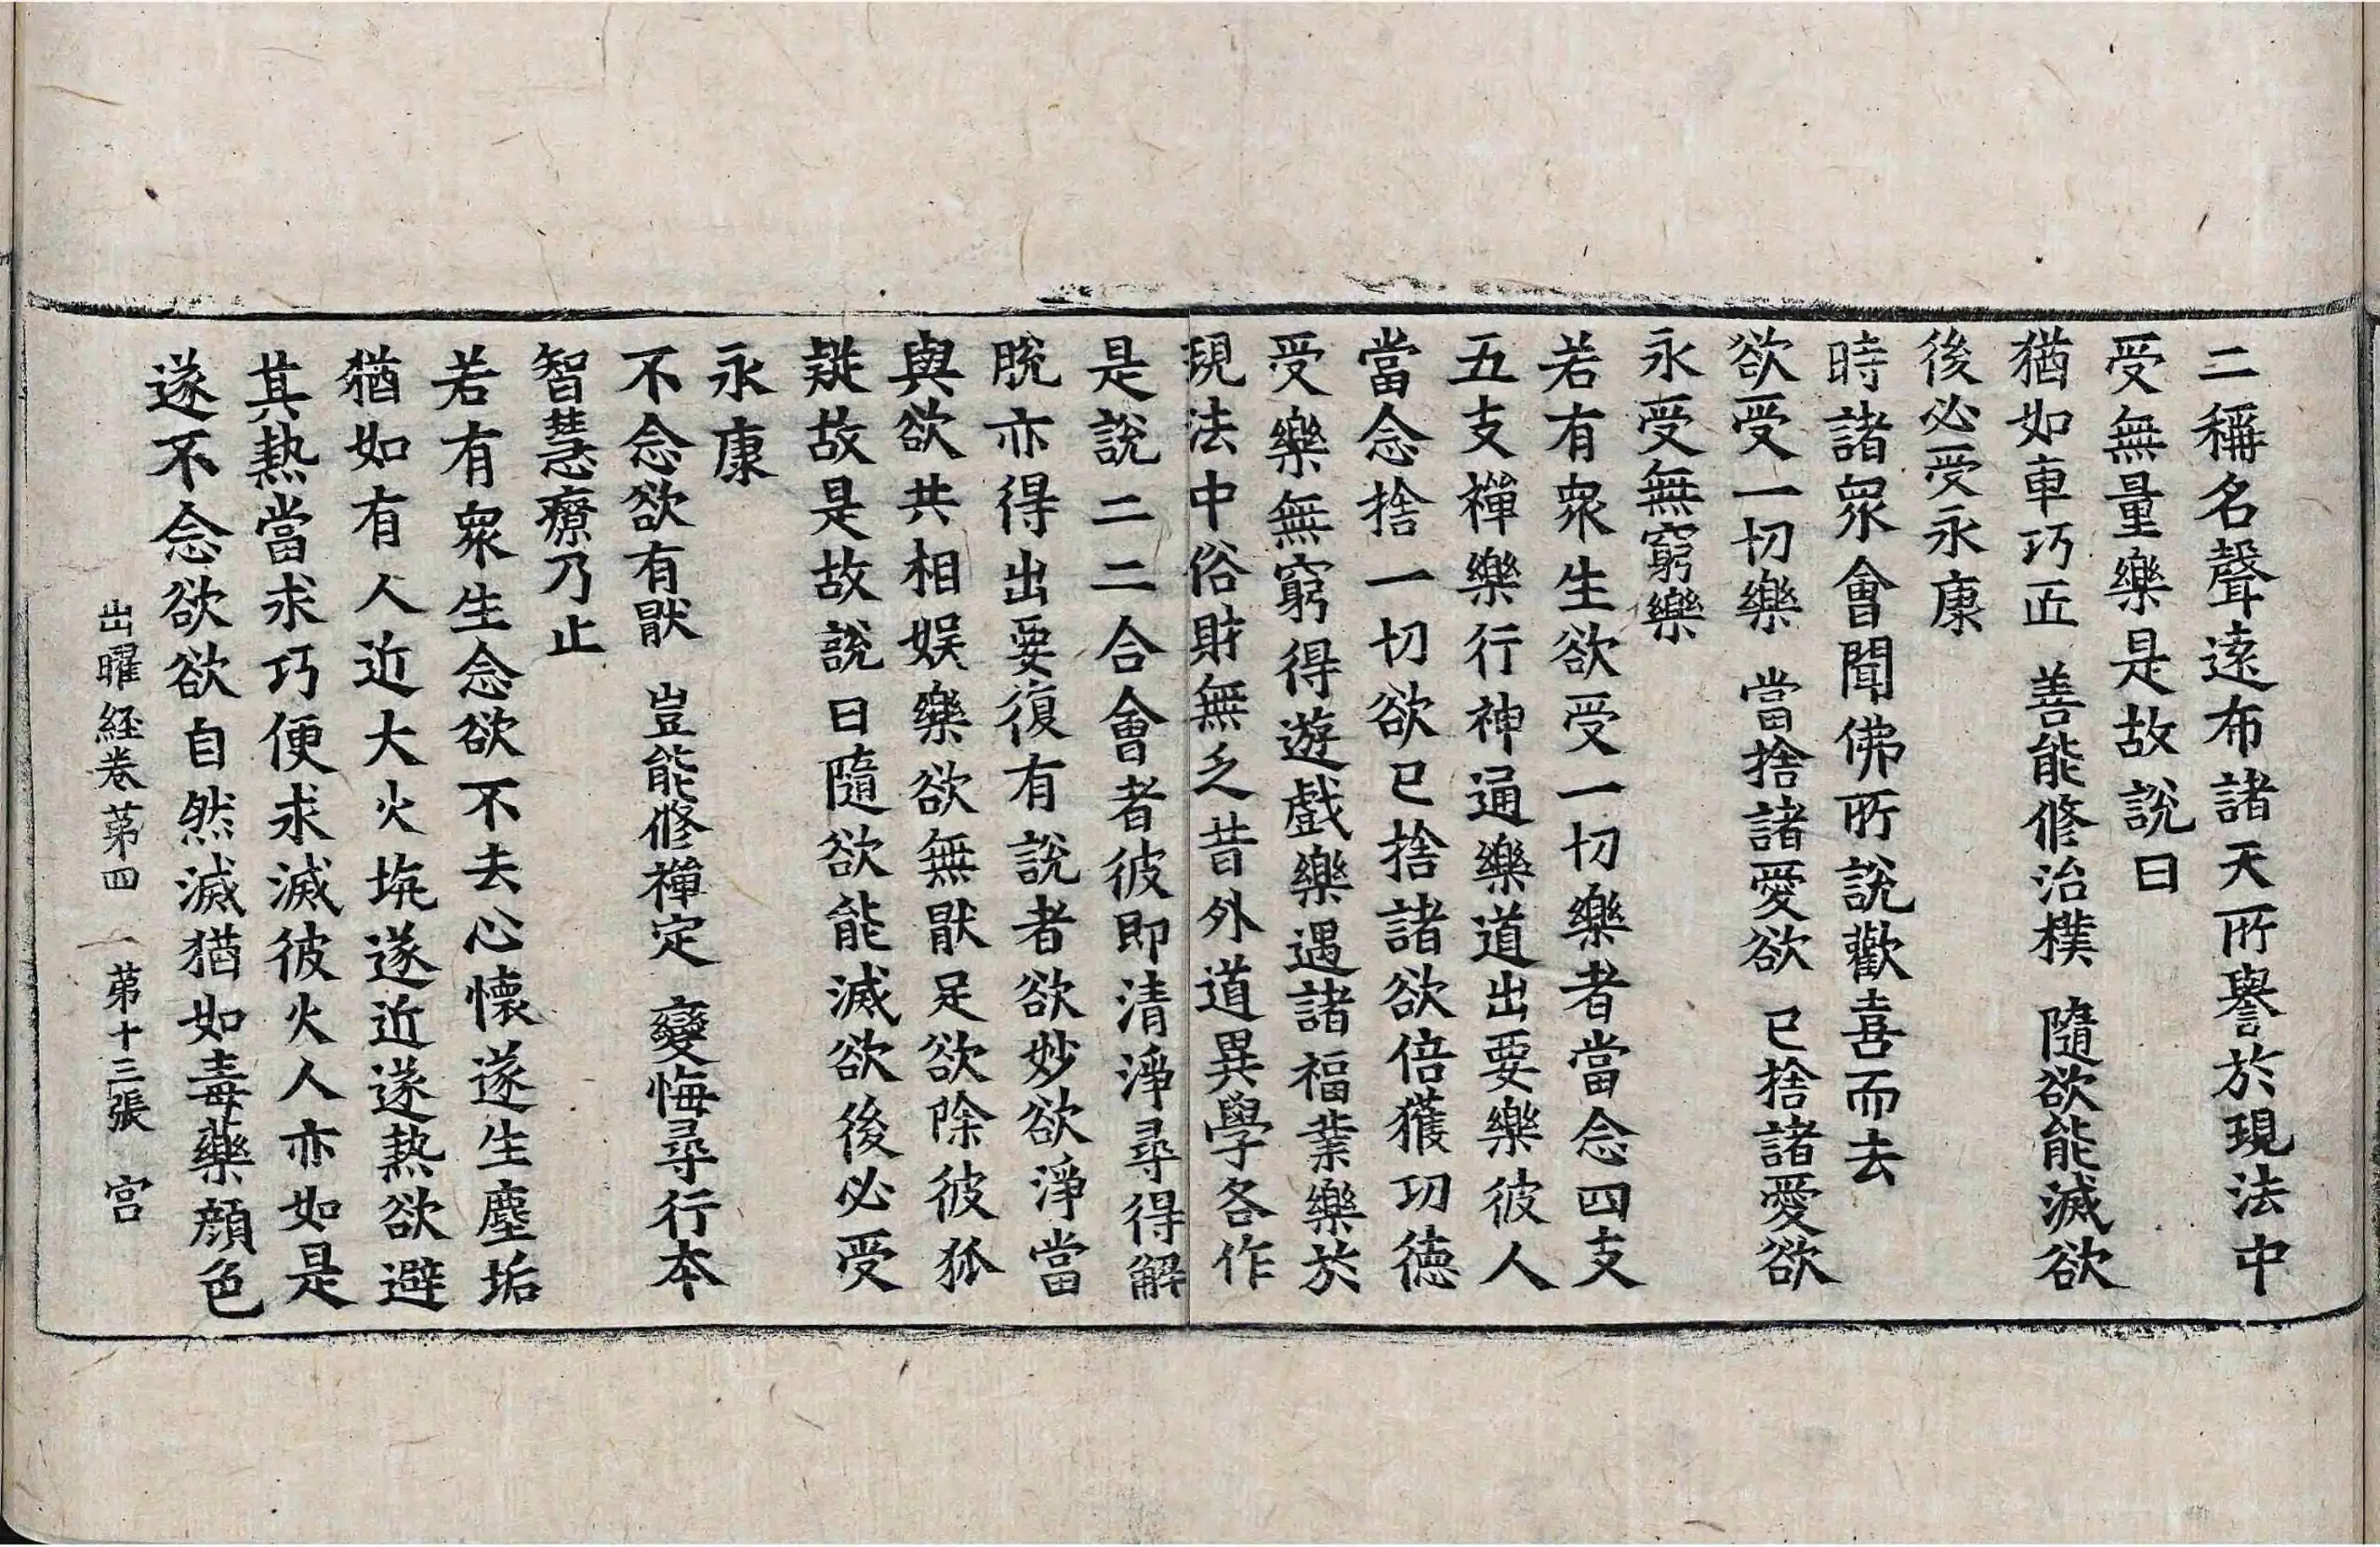 二稱名聲遠布諸天所譽於現法中
受無量樂是故說曰
猶如車巧匠 善能修治樸 隨欲能滅欲
後必受永康
時諸衆會聞佛所說歡喜而去
欲受一切樂 當捨諸愛欲 已捨諸愛欲
永受無窮樂
若有衆生欲受一切樂者當念四支
五支禪樂行神通樂道出要樂彼人
當念捨一切欲已捨諸欲倍獲功德
受樂無窮得遊戲樂遇諸福業樂於
現法中俗財無乏昔外道異學各作
是說二二合會者彼即清淨尋得解
脫亦得出要復有說者欲妙欲淨當
與欲共相娛樂欲無猒足欲除彼狐
疑故是故說曰隨欲能滅欲後必受
永康
不念欲有猒 豈能修禪定 變悔尋行本
智慧療乃止
若有衆生念欲不去心懷遂生塵垢
猶如有人近大火坑遂近遂熱欲避
其熱當求巧便求滅彼火人亦如是
遂不念欲欲自然滅猶如毒藥顔色
出曜経卷第四 第十三張 宫